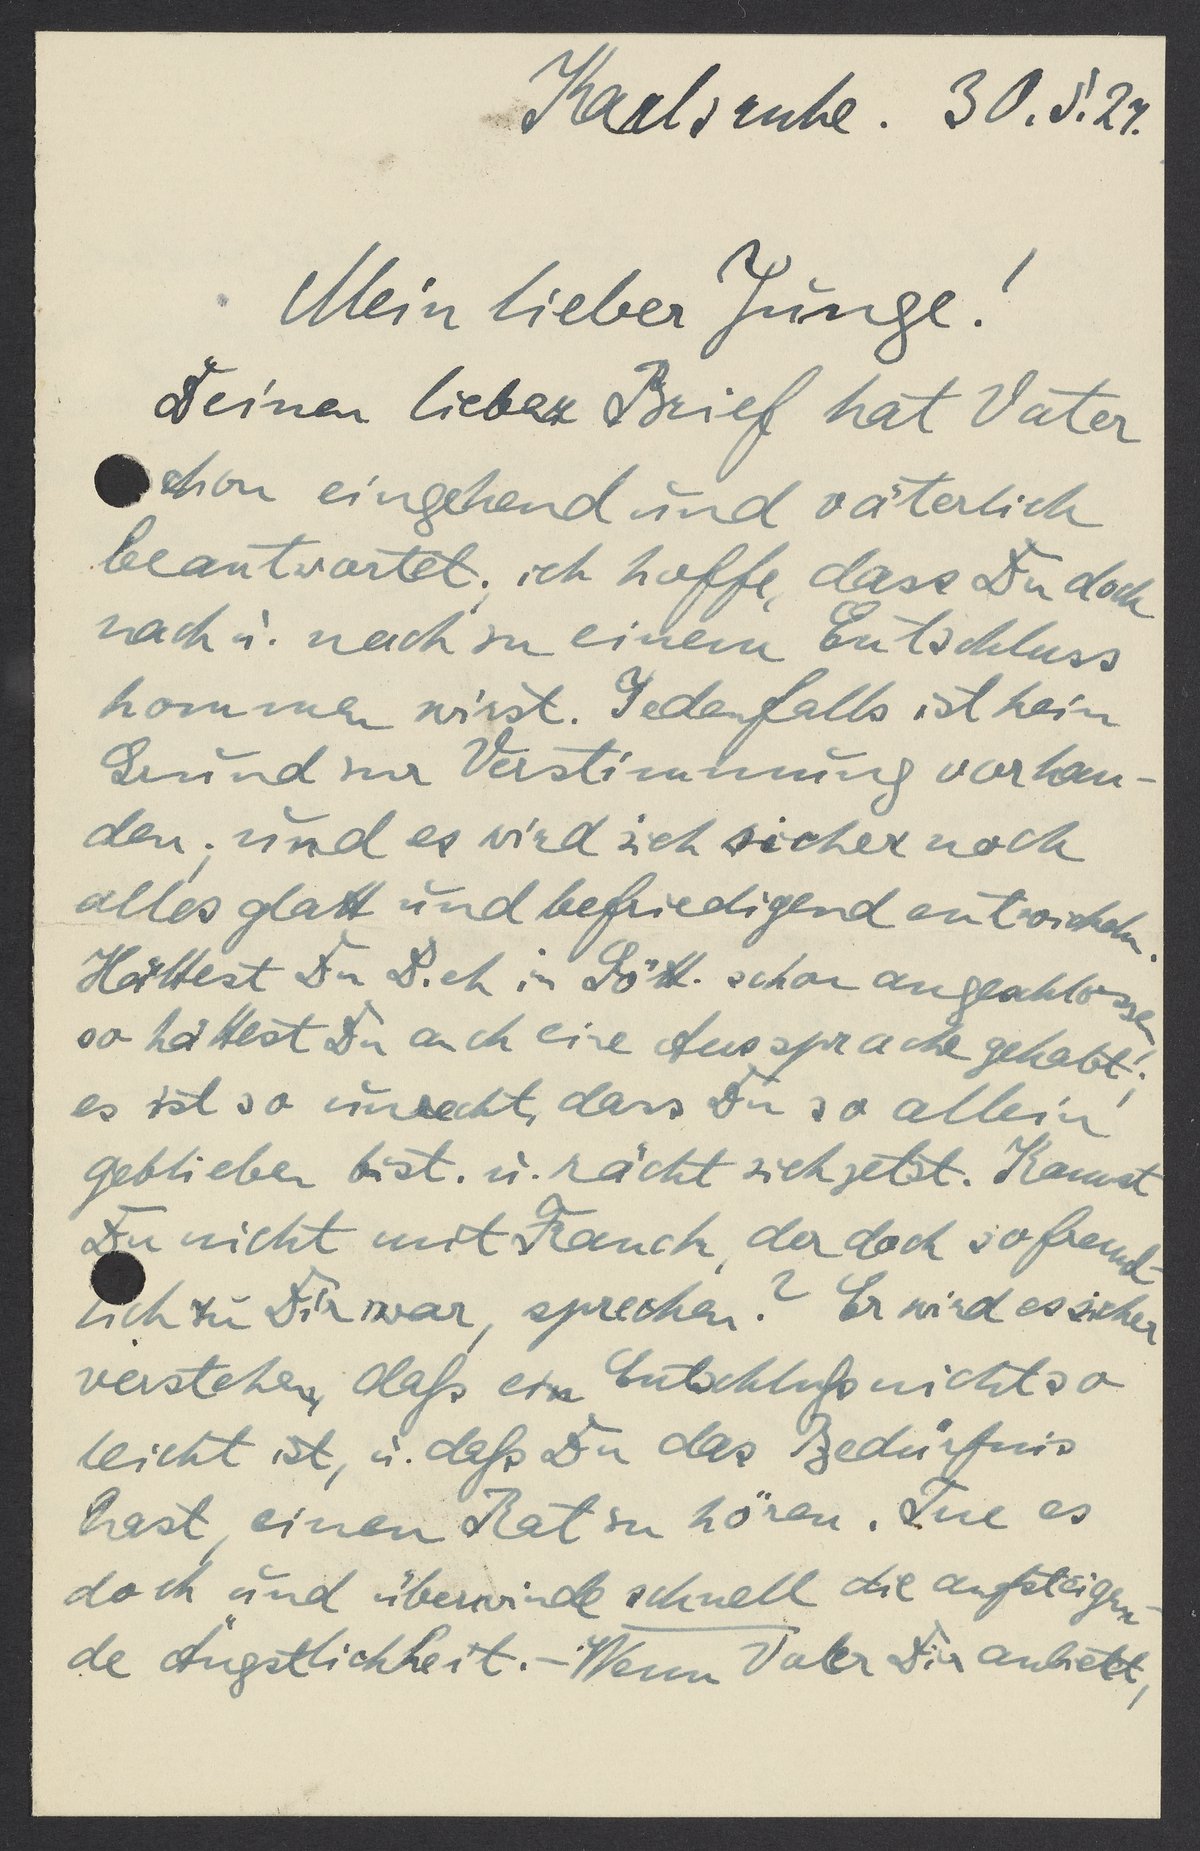 Karlsruhe. 30.5.27.
Mein lieber Junge!
Deinen lieben Brief hat Vater
schon eingehend und väterlich
beantwortet; ich hoffe, dass Du doch
nach u. nach zu einem Entschluss
kommen wirst. Jedenfalls ist kein
Grund zur Verstimmung vorhan-
den; und es wird sich sicher noch
alles glatt und befriedigend entwickeln.
Hättest Du Dich in Gött. schon angeschlossen
so hättest Du auch eine Aussprache gehabt!;
es ist so unrecht, dass Du so allein
geblieben bist. u. rächt sich jetzt. Kannst
Du nicht mit Franck, der doch so freund-
lich zu Dir war, sprechen? Er wird es sicher
verstehen, daß ein Entschluß nicht so
leicht ist, u. daß Du das Bedürfnis
hast, einen Rat zu hören. Tue es
doch und überwinde schnell die aufsteigen-
de Ängstlichkeit. – Wenn Vater Dir anbietet,